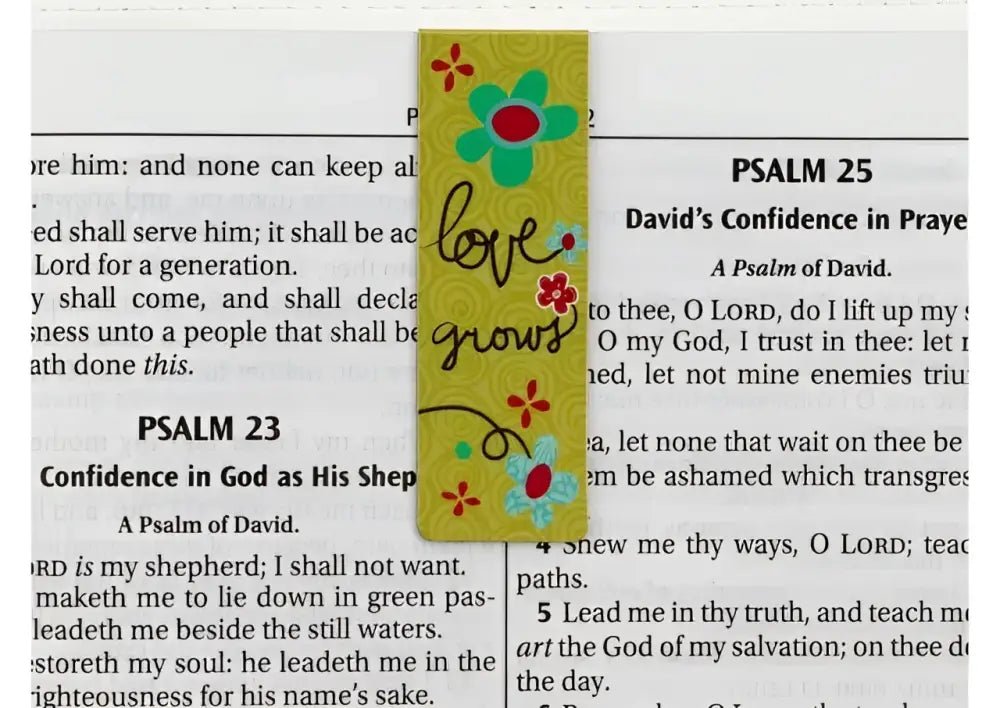 ore him: and none can keep al
ed shall serve him; it shall be ac
Lord for a generation.
y shall come, and shall decla
sness unto a people that shall be
ath done this.
PSALM 23
Confidence in God as His Shep
A Psalm of David.
ORD is my shepherd; I shall not want.
maketh me to lie down in green pas-
leadeth me beside the still waters.
estoreth my soul: he leadeth me in the
righteousness for his name's sake.
love
grows
PSALM 25
David's Confidence in Praye
A Psalm of David.
to thee, O LORD, do I lift up my
O my God, I trust in thee: let
ned, let not mine enemies triu
ea, let none that wait on thee be
em be ashamed which transgres
4 Shew me thy ways, O LORD; teac
paths.
5 Lead me in thy truth, and teach me
art the God of my salvation; on thee do
the day.